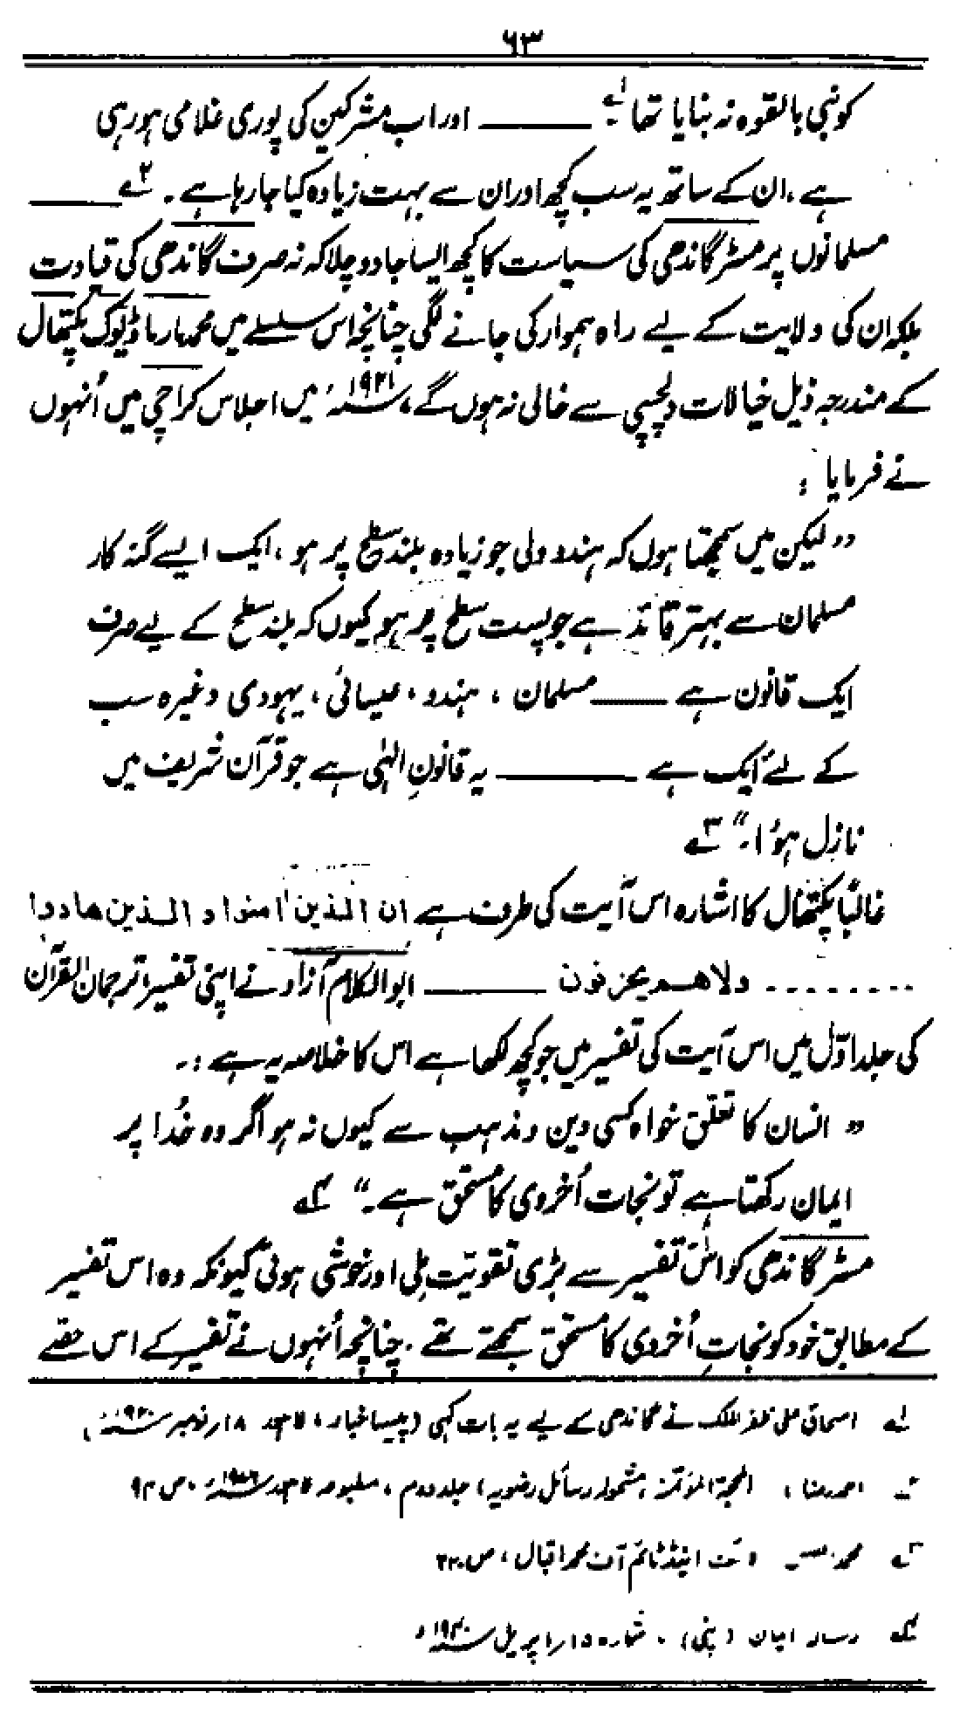 ۶۳
کو نبی بالقوہ نہ بنایا تھا ۱ے ـــــــ اور اب مشرکین کی پوری غلامی ہو رہی
ہے، ان کے ساتھ یہ سب کچھ اور ان سے بہت زیادہ کیا جا رہا ہے۔ ۲ے ـــــــ
مسلمانوں پر مسٹر گاندھی کی سیاست کا کچھ ایسا جادو چلا کہ نہ صرف گاندھی کی قیادت
بلکہ ان کی ولایت کے لیے راہ ہموار کی جانے لگی چنانچہ اس سلسلے میں محمد مارماڈیوک پکتھال
کے مندرجہ ذیل خیالات دلچسپی سے خالی نہ ہوں گے، ۱۹۲۱ء میں اجلاس کراچی میں اُنہوں
نے فرمایا :
”لیکن میں سمجھتا ہوں کہ ہندو ولی جو زیادہ بلند سطح پر ہو، ایک ایسے گنہ گار
مسلمان سے بہتر قائد ہے جو پست سطح پر ہو کیوں کہ بلند سطح کے لیے صرف
ایک قانون ہے ـــــــ مسلمان، ہندو، عیسائی، یہودی وغیرہ سب
کے لئے ایک ہے ـــــــ یہ قانونِ الٰہی ہے جو قرآن شریف میں
نازل ہوُا۔“ ۳ے
غالباً پکتھال کا اشارہ اس آیت کی طرف ہے ان الذین امنوا و الذین ھادوا
........ ولاھم یحزنون ـــــــ ابوالکلام آزاد نے اپنی تفسیر ترجمان القرآن
کی جلد اوّل میں اس آیت کی تفسیر میں جو کچھ لکھا ہے اس کا خلاصہ یہ ہے :۔
”انسان کا تعلق خواہ کسی دین و مذہب سے کیوں نہ ہو اگر وہ خُدا پر
ایمان رکھتا ہے تو نجات اُخروی کا مستحق ہے۔“ ۴ے
مسٹر گاندھی کو اس تفسیر سے بڑی تقویّت ملی اور خوشی ہوئی کیونکہ وہ اس تفسیر
کے مطابق خود کو نجاتِ اُخروی کا مستحق سمجھتے تھے۔ چنانچہ اُنہوں نے تفسیر کے اس حصّے
۱ے اسحاق علی ظفر الملک نے گاندھی کے لیے یہ بات کہی (پیسا اخبار، لاہور ۱۸ نومبر ۱۹۲۰ء)
۲ے احمد رضا، المحجۃ المؤتمنہ مشمولہ رسائل رضویہ، جلد دوم، مطبوعہ لاہور ۱۹۷۶ء، ص ۹۳
۳ے محمد اینڈ ٹائم آف محمد اقبال، ص
۴ے رسالہ (پٹنہ)، شمارہ ۱۵ اپریل ۱۹۴۰ء